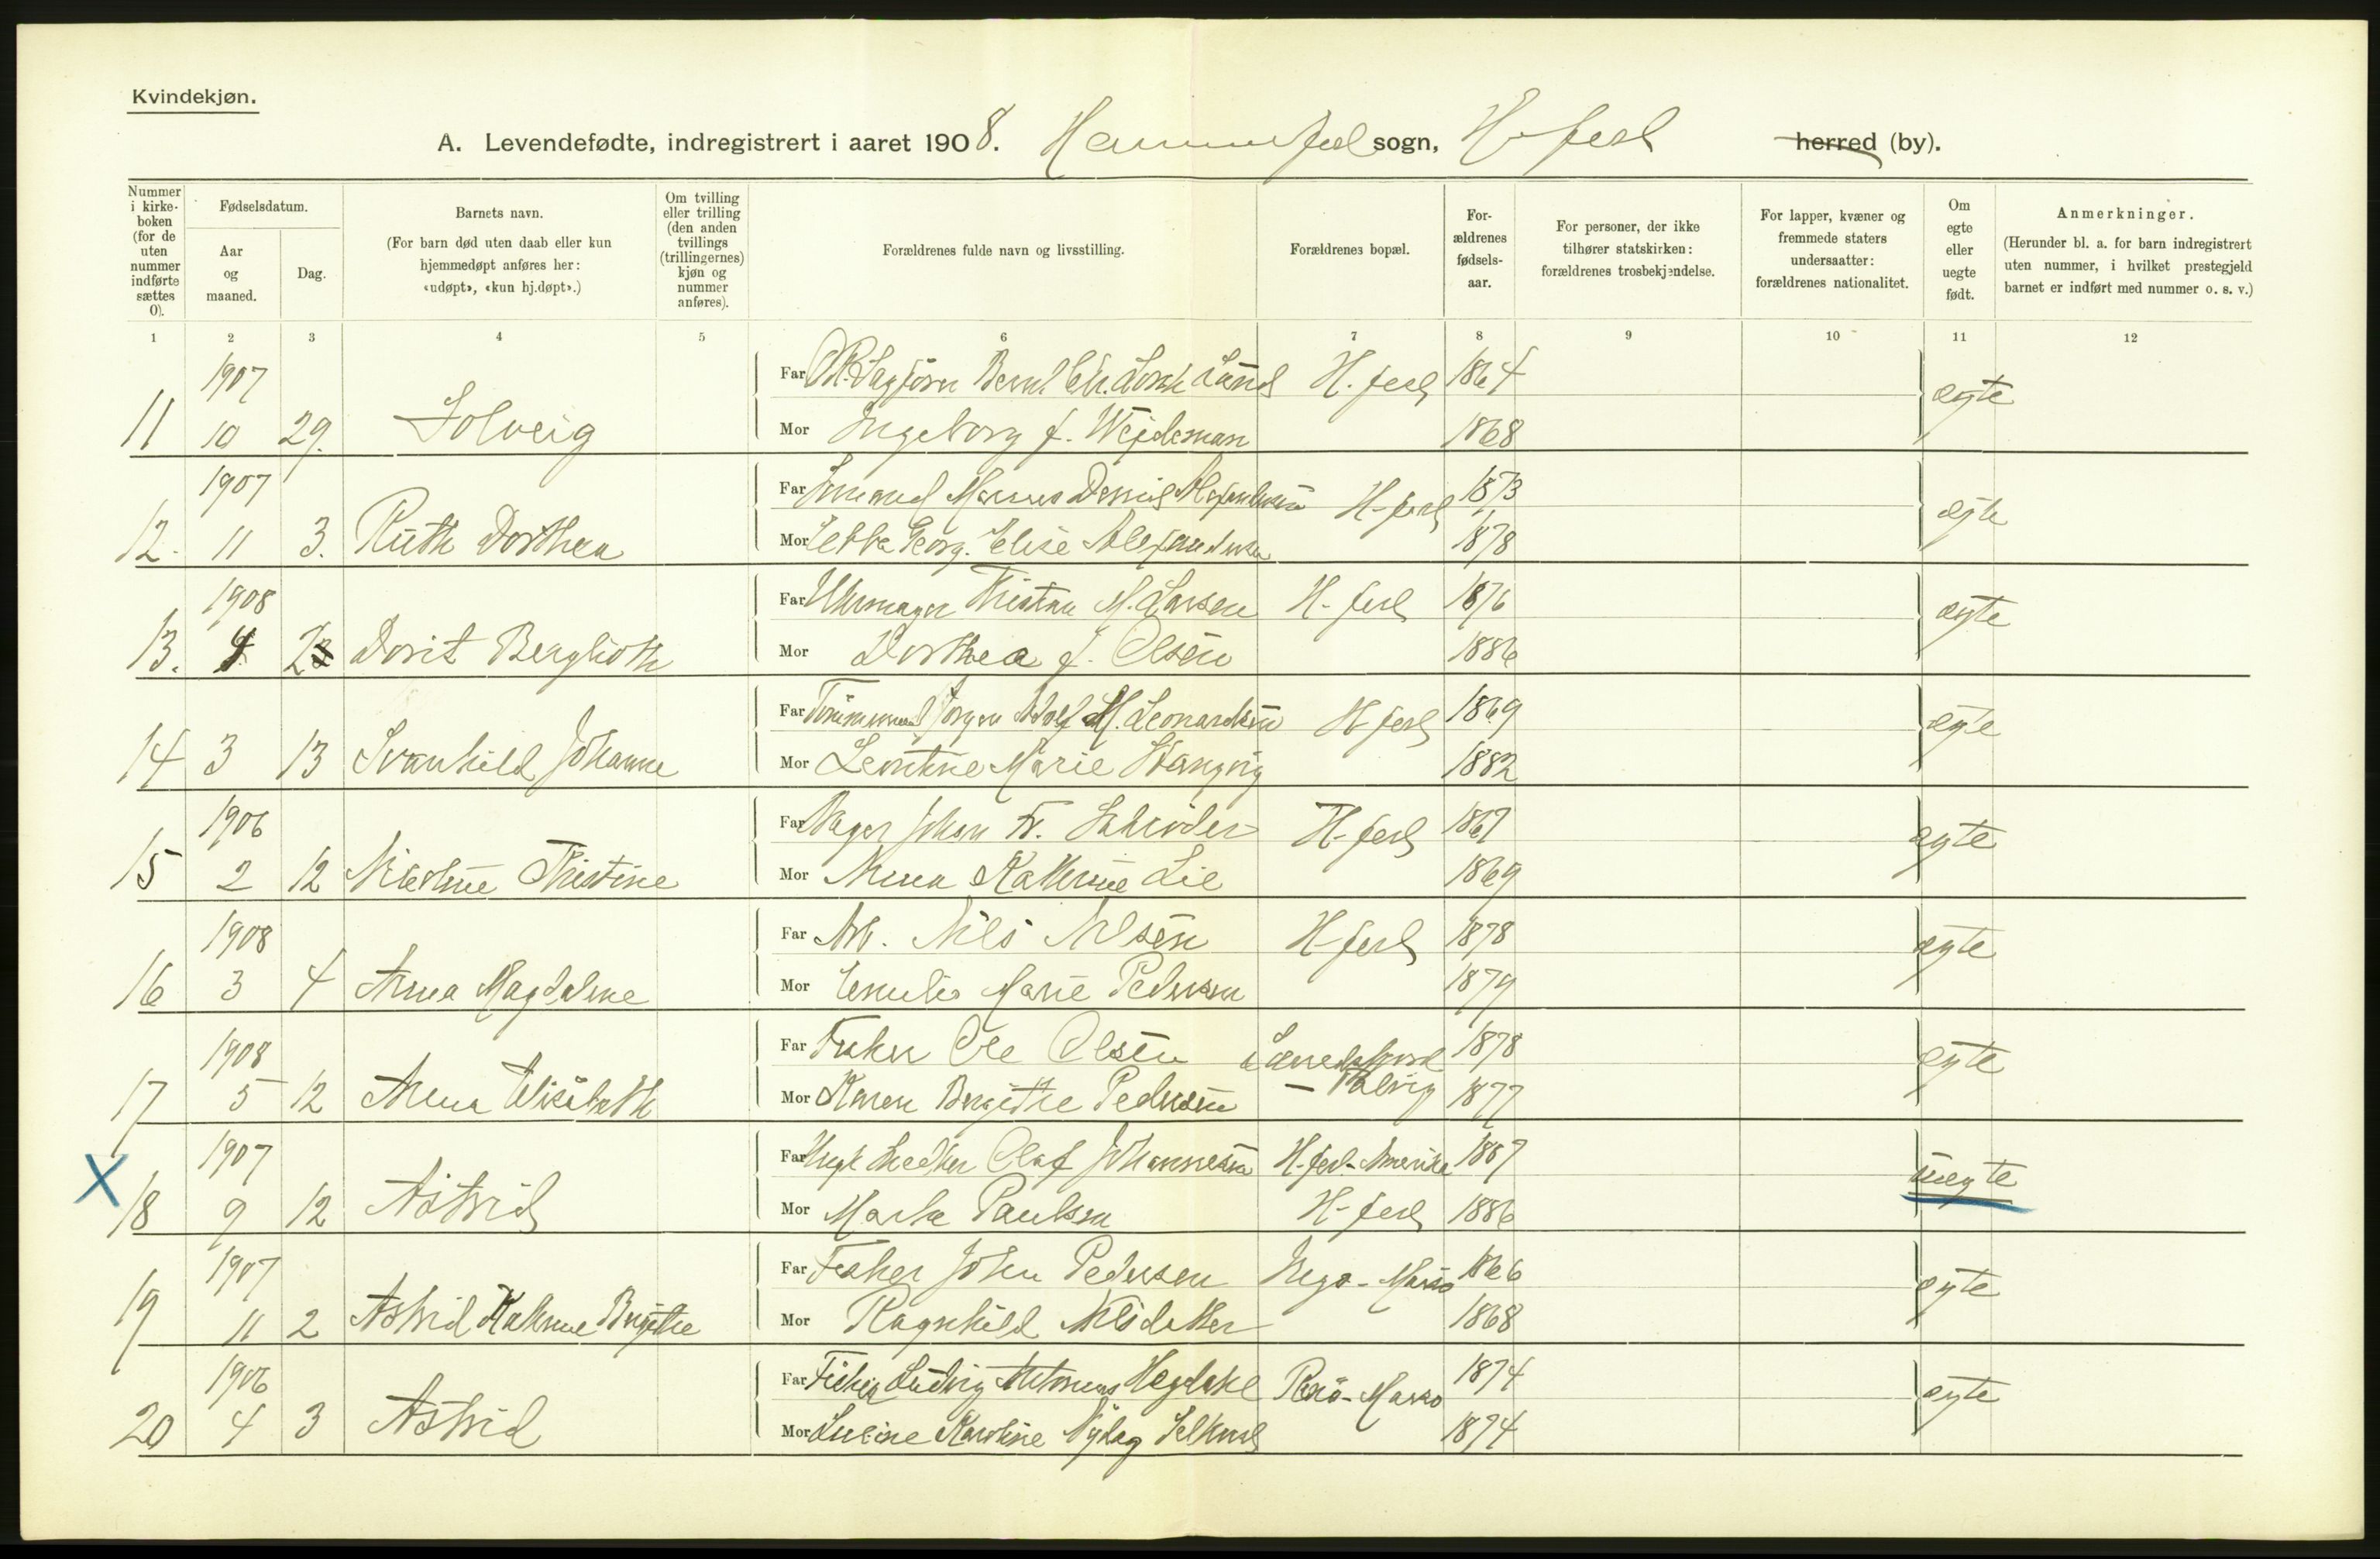 Kvindekjøn.
A. Levendefødte, indregistrert i aaret 1908. sogn, H-fest herred (by).
Nummer i kirke-boken (for de uten nummer indførte sættes 0).
Fødselsdatum.
Aar og maaned.
Dag.
Barnets navn.
(For barn død uten daab eller kun hjemmedøpt anføres her: «udøpt», «kun hj.døpt».)
Om tvilling eller trilling (den anden tvillings (trillingernes) kjøn og nummer anføres).
Forældrenes fulde navn og livsstilling.
Forældrenes bopæl.
For-ældrenes fødsels-aar.
For personer, der ikke tilhører statskirken: forældrenes trosbekjendelse.
For lapper, kvæner og fremmede staters undersaatter: forældrenes nationalitet.
Om egte eller uegte født.
Anmerkninger.
(Herunder bl. a. for barn indregistrert uten nummer, i hvilket prestegjeld barnet er indført med nummer o. s. v.)
1 2 3 4 5 6 7 8 9 10 11 12
1907 Far H-fest 1864 ægte
11 10 29. Solveig Mor Ingeborg f. Wejdeman 1868
1907 Far H-fest 1873 ægte
12. 11 3. Ruth Dorthea Mor Elise Alexandersen 1878
1908 Far Uhrmager Kristian M. Larsen H-fest 1876 ægte
13. Dorit Berglioth Mor Dorthea f. Olsen 1886
Far Tømmermand Jørgen Adolf M. Leonardsen H-fest 1869 ægte
14 3 13 Svanhild Johanne Mor Leontine Marie 1882
1906 Far Bager Johan Fr. Schrøder H-fest 1867 ægte
15 2 12 Nicoline Kristine Mor Anna Kathrine Lie 1869
1908 Far Arb. Nils Nilsen H-fest 1878 ægte
16 3 4 Anna Magdalene Mor Emilie Marie Pedersen 1879
1908 Far Fisker Ole Olsen 1878 ægte
17 5 12 Anna Elisabeth Mor Karen Bergithe Pedersen 1877
1907 Far Olaf Johannesen H-fest-Amerika 1887 uegte
X
18 9 12 Astrid Mor Paulsen H-fest 1886
1907 Far Fisker John Pedersen 1866 ægte
19 11 2 Astrid Kathrine Bergithe Mor Ragnhild 1868
1906 Far Fisker Ludvig 1874 ægte
20 4 3 Astrid Mor Karoline 1874